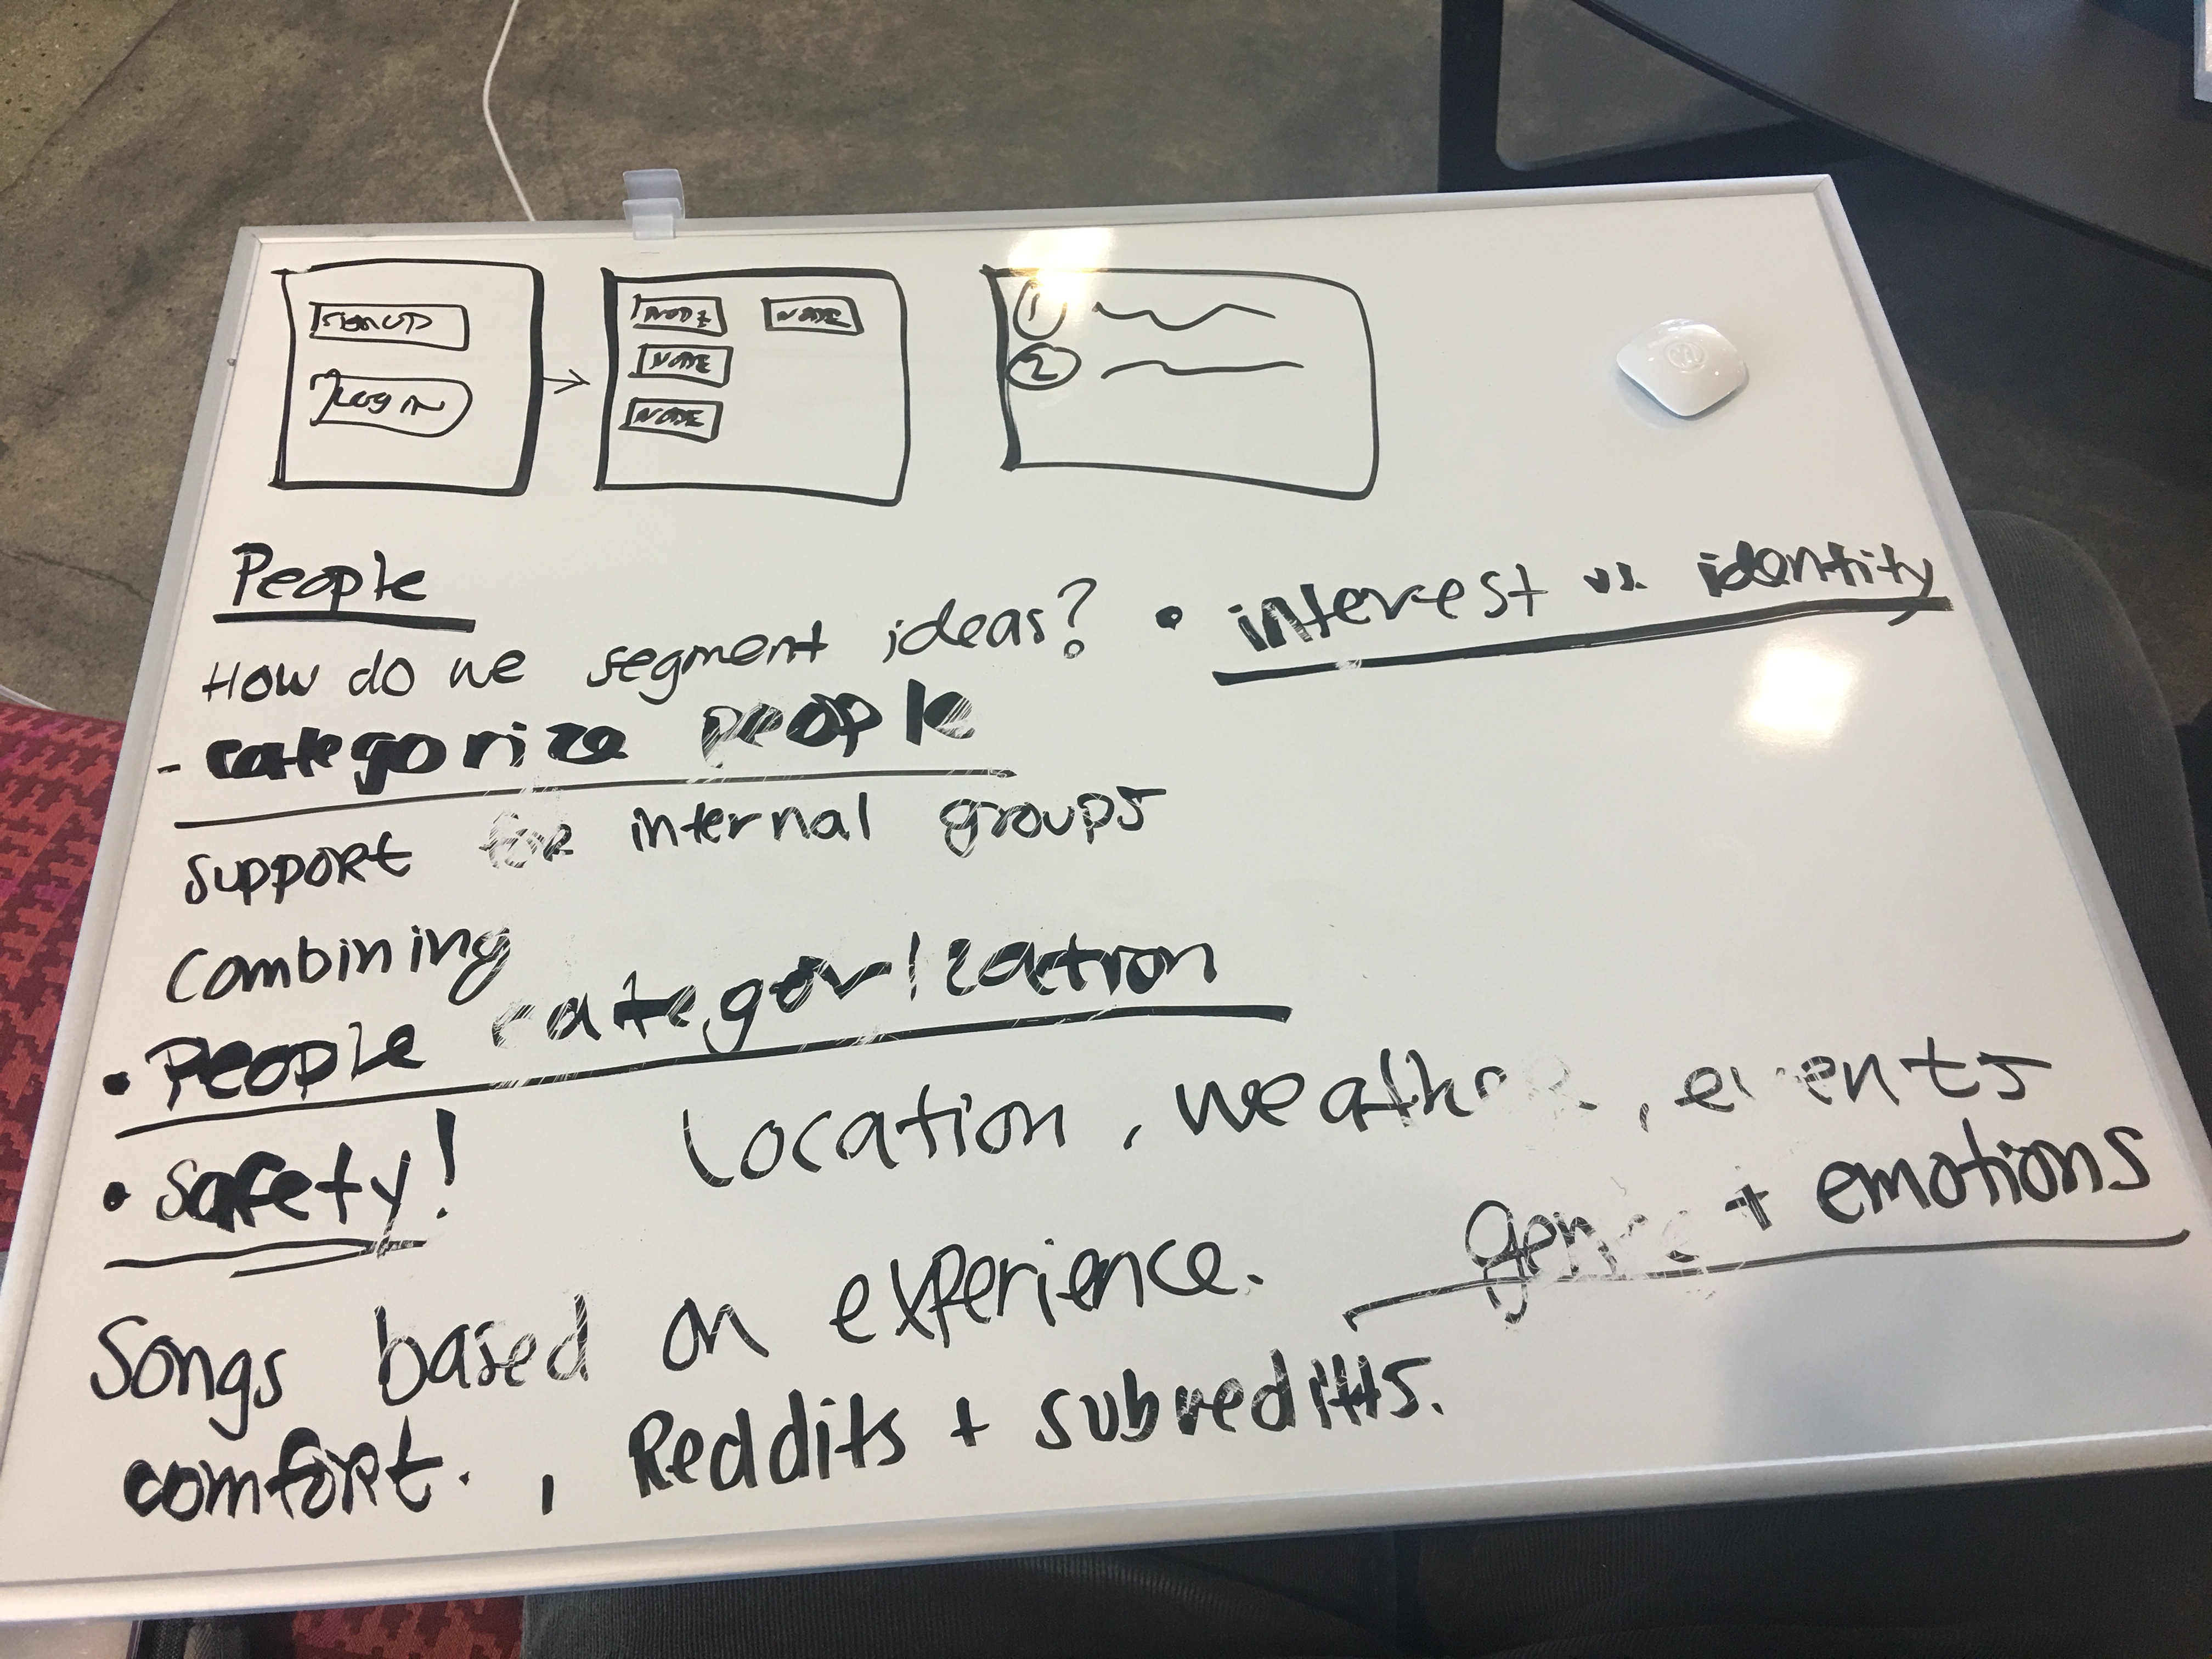 signup
Login
NODE NODE
NODE
NODE
1
2
People
How do we segment ideas? • interest vs. identity
- categorize people
support for internal groups
Combining
• People categorization
• Safety! Location, weather, events
Songs based on experience. genres + emotions
comfort. , Reddits + subreditts.